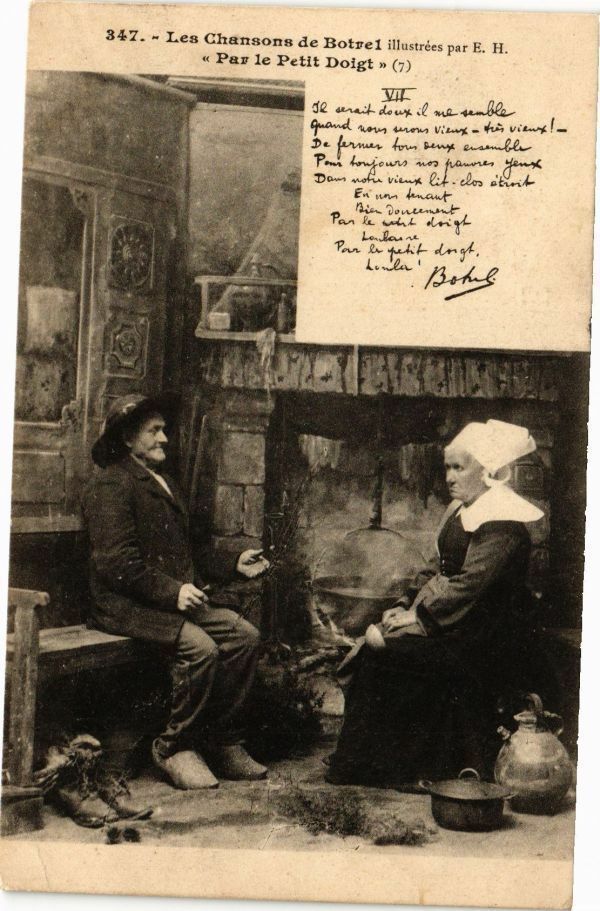 347. - Les Chansons de Botrel illustrées par E. H.
« Par le Petit Doigt » (7)
VII
Il serait doux il me semble
Quand nous serons vieux - très vieux ! -
De fermer tous deux ensemble
Pour toujours nos pauvres yeux
Dans notre vieux lit-clos étroit
En nous tenant
Bien doucement
Par le petit doigt
Lonlaire
Par le petit doigt,
Lonla !
Botrel